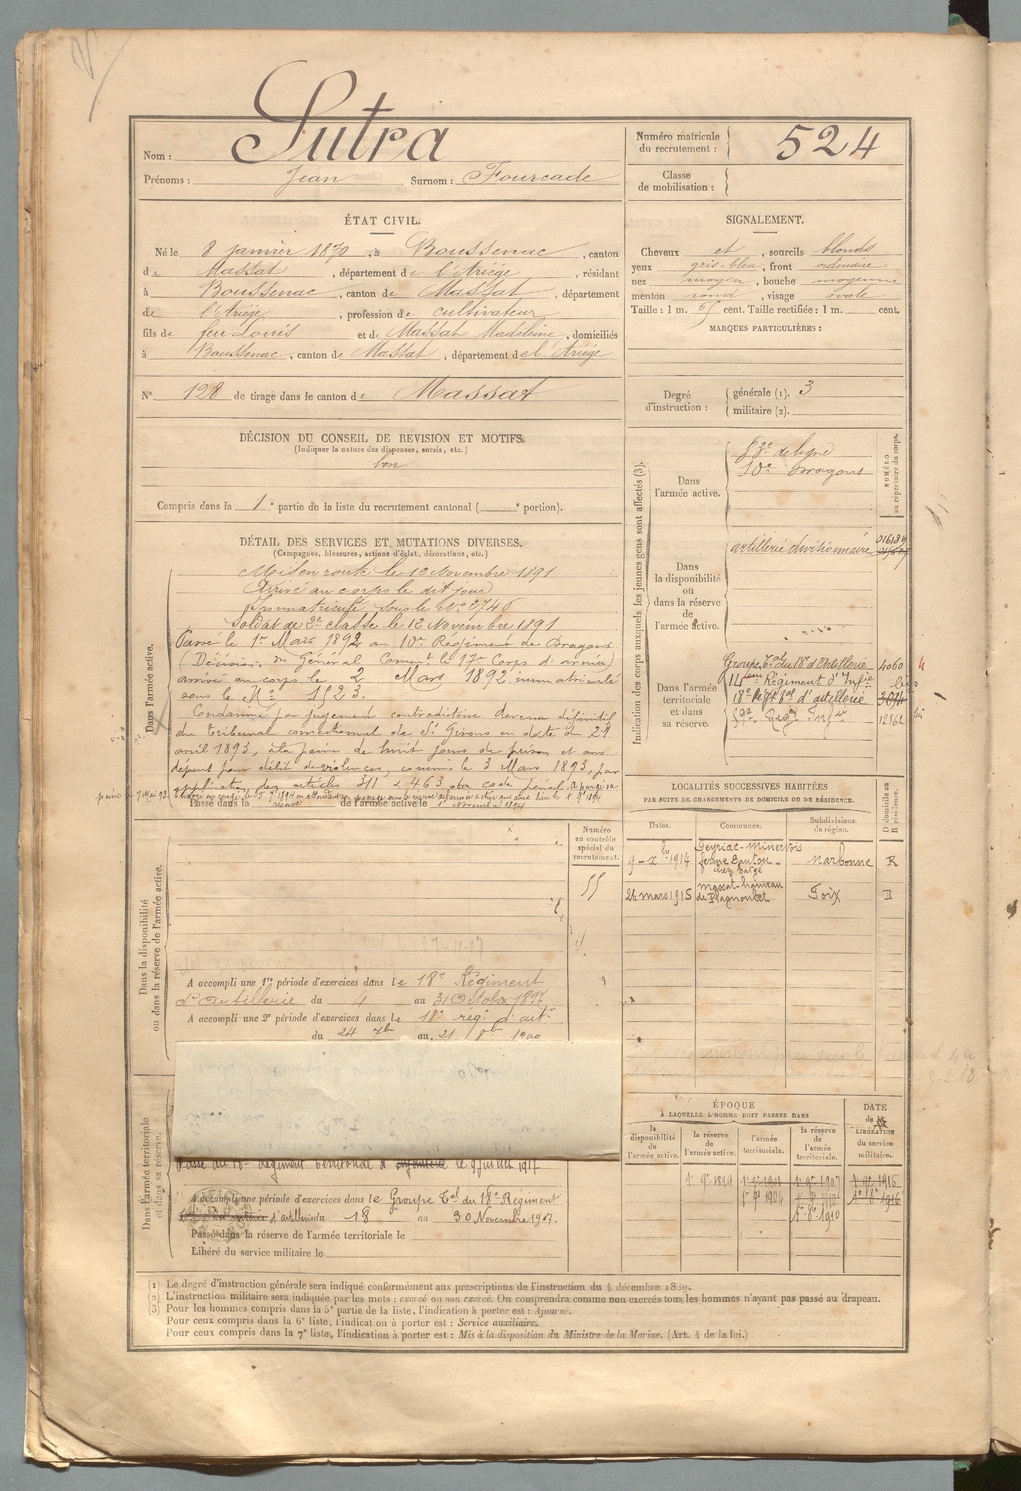 Nom : Sutra
Prénoms : Jean Surnom : Fourcade
Numéro matricule du recrutement : 524
Classe de mobilisation :
ÉTAT CIVIL.
Né le 8 janvier 1870, à Boussenac, canton
de Massat, département de l'Ariège, résidant
à Boussenac, canton de Massat, département
de l'Ariège, profession de cultivateur
fils de feu Louis et de Massat Madeleine, domiciliés
à Boussenac, canton de Massat, département de l'Ariège
N° 128 de tirage dans le canton de Massat
SIGNALEMENT.
Cheveux et, sourcils blonds
yeux gris-bleu, front ordinaire
nez moyen, bouche moyenne
menton rond, visage ovale
Taille : 1 m. cent. Taille rectifiée : 1 m. cent.
MARQUES PARTICULIÈRES :
Degré d'instruction : générale (1). 3
militaire (2).
DÉCISION DU CONSEIL DE REVISION ET MOTIFS.
(Indiquer la nature des dispenses, sursis, etc.)
bon
Compris dans la 1e partie de la liste du recrutement cantonal ( e portion).
DÉTAIL DES SERVICES ET MUTATIONS DIVERSES.
(Campagnes, blessures, actions d'éclat, décorations, etc.)
Dans l'armée active.
Mis en route le 12 Novembre 1891
Arrivé au corps le dit jour
Immatriculé sous le N° 2746
Soldat de 2e classe le 12 Novembre 1891
Passé le 1er Mars 1892 au 10e Régiment de Dragons
(Décision du Général Comm. le 17e Corps d'armée)
arrivé au corps le 2 Mars 1892 immatriculé
sous le N° 1523.
Condamné par jugement contradictoire devenu définitif
du tribunal correctionnel de St Girons en date du 29
avril 1893, à la peine de huit jours de prison et aux
dépens pour délit de violences, commis le 3 Mars 1893, par
application des articles 311 & 463 du code pénal. A purgé sa
Passé dans la réserve de l'armée active le 1er Novembre 1894
Indication des corps auxquels les jeunes gens sont affectés (3).
NUMÉRO au répertoire du corps.
Dans l'armée active.
de ligne
10e Dragons
Dans la disponibilité ou dans la réserve de l'armée active.
artillerie divisionnaire
Dans l'armée territoriale et dans sa réserve.
Groupe Tal du 18e d'Artillerie 4060
Régiment d'Infie
18e Régt Tal d'artillerie
LOCALITÉS SUCCESSIVES HABITÉES
PAR SUITE DE CHANGEMENTS DE DOMICILE OU DE RÉSIDENCE.
Dates. Communes. Subdivisions de région. D domicile ou R résidence.
1914 Peyriac-Minervois ferme Narbonne R
26 mars 1915 Massat hameau de Foix D
Numéro au contrôle spécial du recrutement.
55
Dans la disponibilité ou dans la réserve de l'armée active.
A accompli une 1re période d'exercices dans le 18e Régiment
d'Artillerie du 4 au 31 Octobre 1897
A accompli une 2e période d'exercices dans le 18e régt d'artie
du 24 7bre au 21 8bre 1900
Dans l'armée territoriale et dans sa réserve.
Passé au 18e Régiment territorial d'infanterie le
A accompli une période d'exercices dans le Groupe Tal du 18e Régiment
d'artillerie du 18 au 30 Novembre 1907.
Passé dans la réserve de l'armée territoriale le
Libéré du service militaire le
ÉPOQUE
A LAQUELLE L'HOMME DOIT PASSER DANS
la disponibilité de l'armée active.
la réserve de l'armée active.
l'armée territoriale.
la réserve de l'armée territoriale.
DATE de la LIBÉRATION du service militaire.
1er 9bre 1894
(1) Le degré d'instruction générale sera indiqué conformément aux prescriptions de l'instruction du 4 décembre 1889.
(2) L'instruction militaire sera indiquée par les mots : exercé ou non exercé. On comprendra comme non exercés tous les hommes n'ayant pas passé au drapeau.
(3) Pour les hommes compris dans la 5e partie de la liste, l'indication à porter est : Ajourné.
Pour ceux compris dans la 6e liste, l'indication à porter est : Service auxiliaire.
Pour ceux compris dans la 7e liste, l'indication à porter est : Mis à la disposition du Ministre de la Marine. (Art. 4 de la loi.)